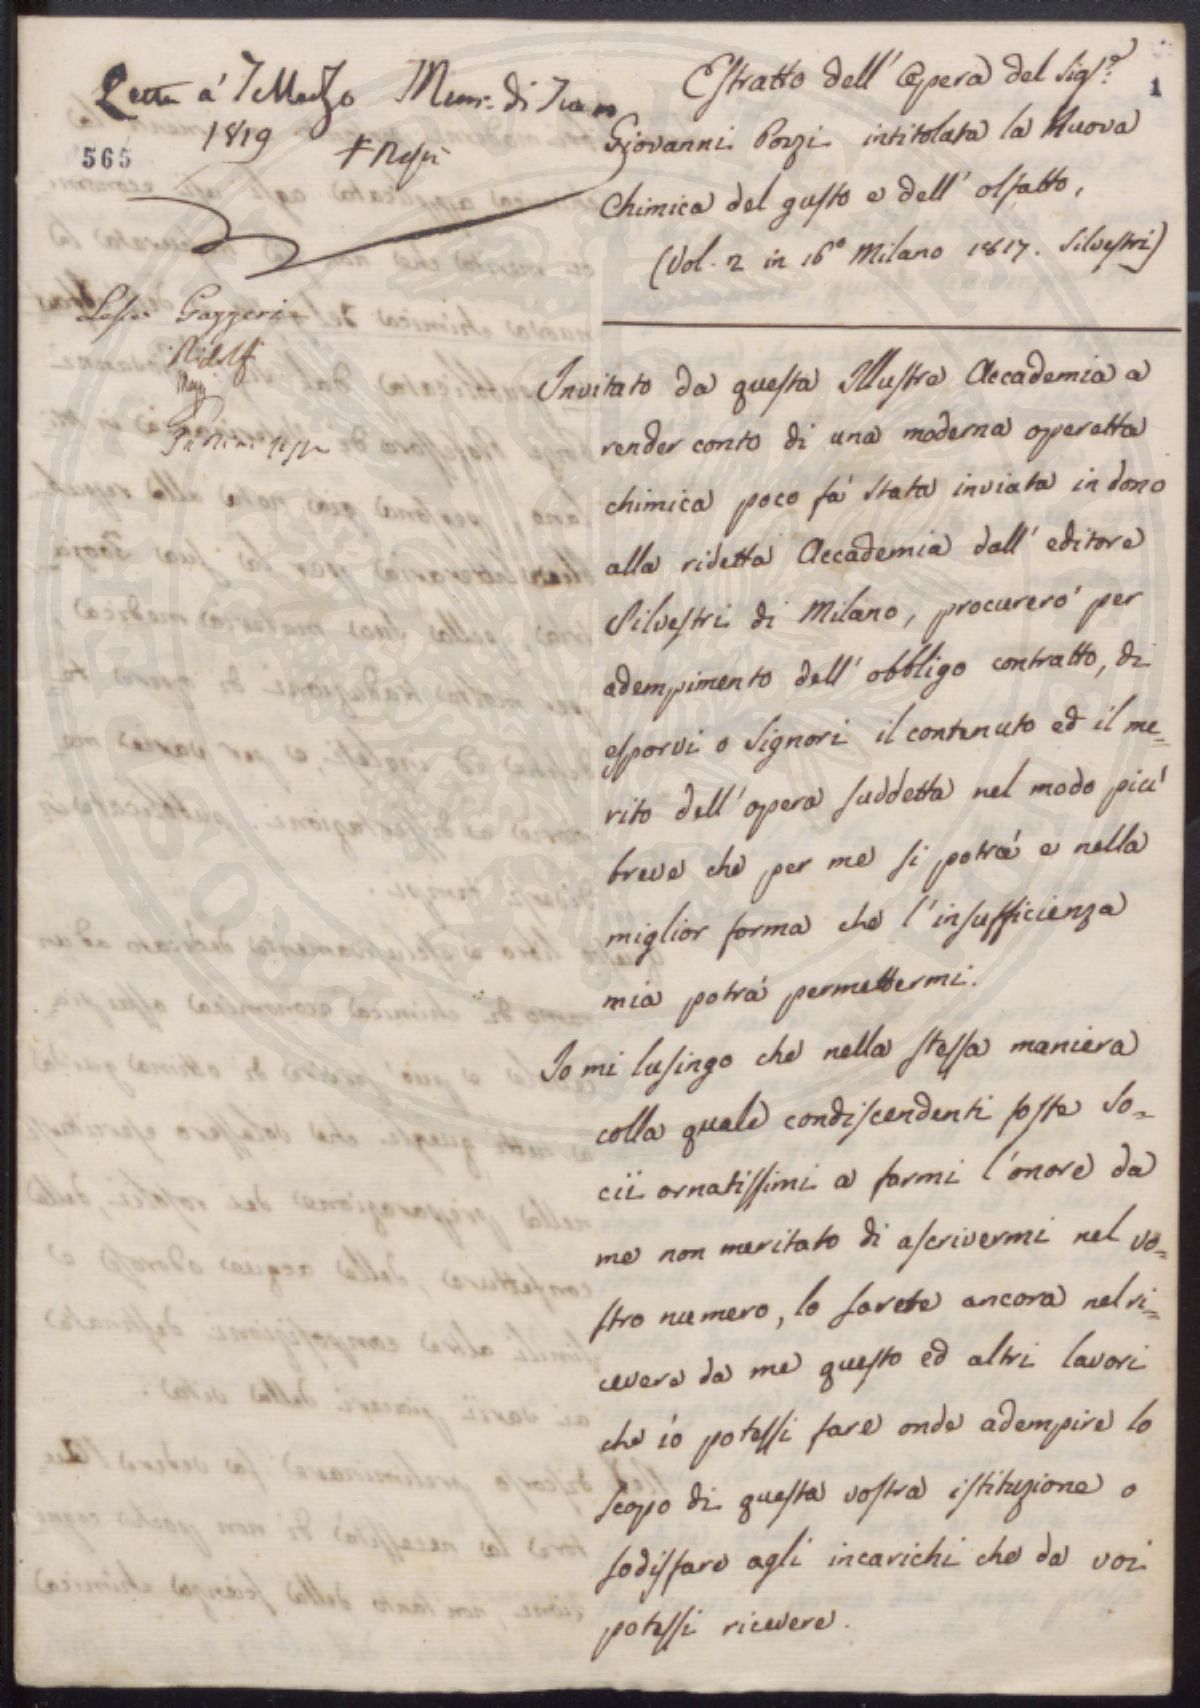 Letta a' 7 Marzo
1819
565
Estratto dell' Opera del Sig.r
1
Giovanni Pozzi intitolata la Nuova
Chimica del gusto e dell' olfatto,
(Vol. 2 in 16.o Milano 1817. Silvestri)
Gazzeri
Ridolfi
Invitato da questa Illustre Accademia a
render conto di una moderna operetta
chimica poco fa' stata inviata in dono
alla ridetta Accademia dall' editore
Silvestri di Milano, procurerò per
adempimento dell' obbligo contratto, di
esporvi o Signori il contenuto ed il me=
rito dell' opera suddetta nel modo più
breve che per me si potrà e nella
miglior forma che l' insufficienza
mia potrà permettermi.
Io mi lusingo che nella stessa maniera
colla quale condiscendenti foste So=
cii ornatissimi a farmi l' onore da
me non meritato di ascrivermi nel vo=
stro numero, lo sarete ancora nel ri=
cevere da me questo ed altri lavori
che io potessi fare onde adempire lo
scopo di questa vostra istituzione o
sodisfare agli incarichi che da voi
potessi ricevere.